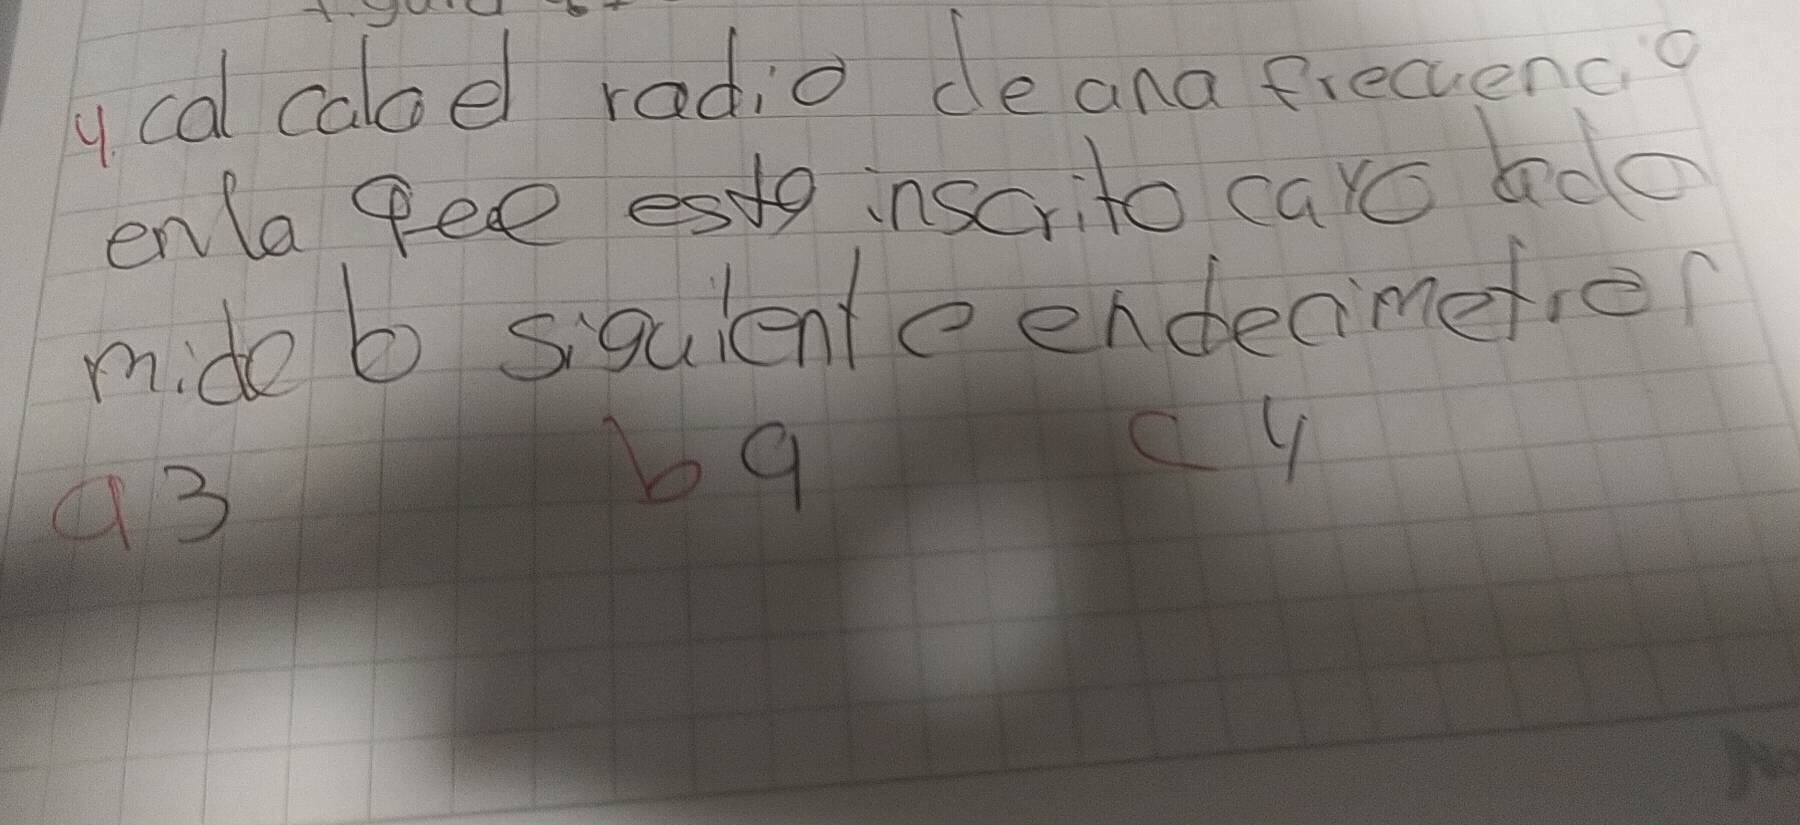 4. cal calo el radio de una frecuencia
en la qee esta inscrito cuyo lado
mide lo siguiente en decimetros
a 3 b 9 c 4